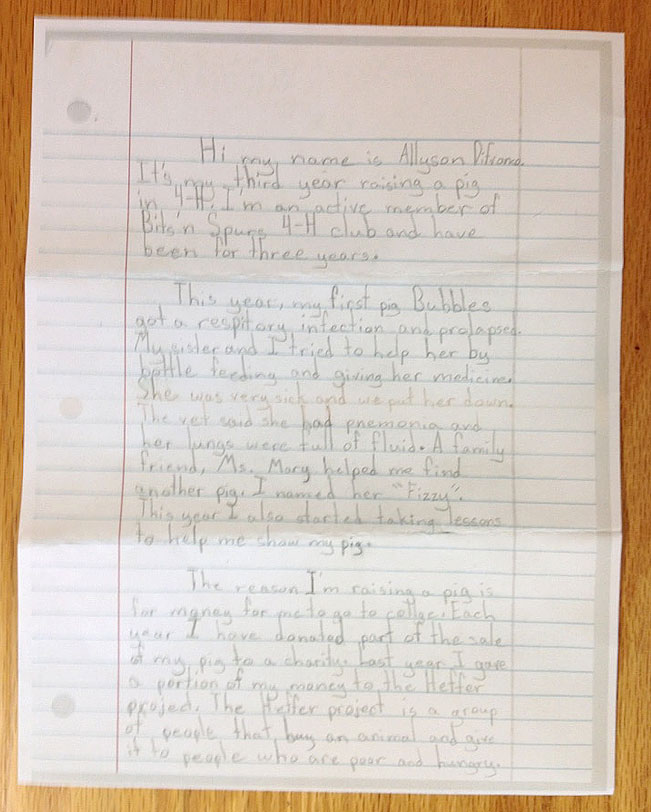 Hi my name is Allyson Difroma.
It's my third year raising a pig
in 4-H. I'm an active member of
Bits'n Spurs 4-H club and have
been for three years.
This year, my first pig Bubbles
got a respitory infection and prolapsed.
My sister and I tried to help her by
bottle feeding and giving her medicine.
She was very sick and we put her down.
The vet said she had pnemonia and
her lungs were full of fluid. A family
friend, Ms. Mary helped me find
another pig. I named her "Fizzy".
This year I also started taking lessons
to help me show my pig.
The reason I'm raising a pig is
for money for me to go to collge. Each
year I have donated part of the sale
of my pig to a charity. Last year I gave
a portion of my money to the Heffer
project. The Heffer project is a group
of people that buy an animal and give
it to people who are poor and hungry.